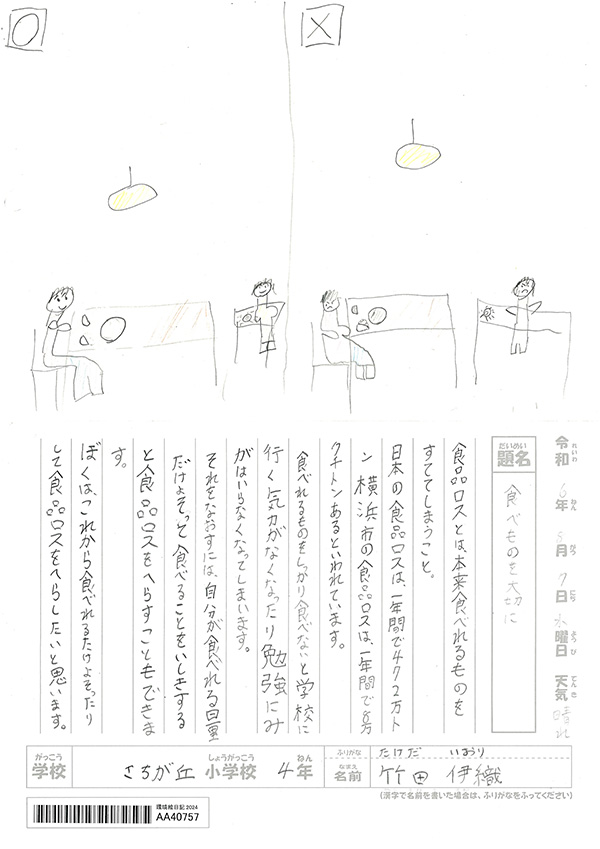 ○
×
令和6年 月7日水曜日 天気晴れ
れいわ ねん がつ にち ようび てんき
だいめい
題名
食べものを大切に
食品ロスとは、本来食べれるものを
すててしまうこと。
日本の食品ロスは、一年間で472万ト
ン 横浜市の食品ロスは、一年間で
トンあるといわれています。
食べれるものをしっかり食べないと学校に
行く気力がなくなったり勉強にみ
がはいらなくなってしまいます。
それをなおすには、自分が食べれる量
だけよそって食べることをいしきする
と食品ロスをへらすこともできま
す。
ぼくは、これから食べれるだけよそったり
して食品ロスをへらしたいと思います。
がっこう しょうがっこう ねん ふりがな たけだ いおり
学校 さちが丘 小学校 4年 なまえ 名前 竹田 伊織
(漢字で名前を書いた場合は、ふりがなをふってください)
環境絵日記2024
AA40757